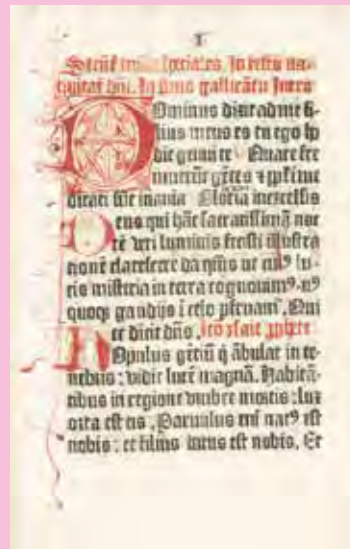 I
Secūt misse spēciales. In festo na-
tiuitat dni. In primo gallicātu Intro
Dominus dixit ad me fi-
lius meus es tu ego ho
die genui te Quare fre
muerūt gētes ⁊ ppli me
ditati sūt inania Gloria in excelsis
Deus qui hāc sacratissimā noc
tē veri luminis fecisti illustra
tione clarescere da q̄s ut cui⁹ lu-
cis misteria in terra cognouim⁹. ei⁹
quoq̄ gaudijs ī celo pfruam. Qui
tec dicit dn̄s
Populus gētiū q̄ ābulat in te-
nebris: vidit lucē magnā. Habitā-
tibus in regione vmbre mortis: lux
orta est eis. Paruulus em̄ nat⁹ est
nobis: et filius datus est nobis. Et